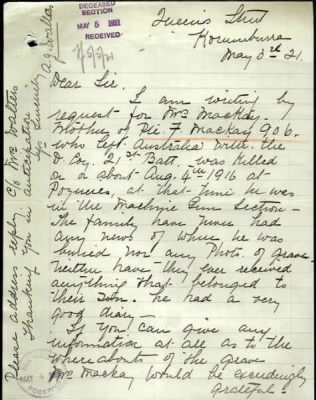 DECEASED
SECTION
MAY 5 1921
Street
Korumburra
May 3rd 21.
Dear Sir.
I am writing by
request for Mrs Mackay.
Mother of Pte. F. Mackay 906.
who left Australia with the
D Coy. 21st Batt. was killed
on or about Aug. 4th 1916 at
Pozieres, at that time he was
in the Machine Gun Section –
The family have never had
any news of where he was
buried nor any Photo. of Grave.
Neither have they ever received
anything that belonged to
their Son. he had a very
good diary –
If you can give any
information at all as to the
whereabouts of the grave
Mrs Mackay would be exceedingly
grateful.
Please address reply C/o Mrs Walters
Thanking You in anticipation
Yrs Sincerely
A. J. Walters